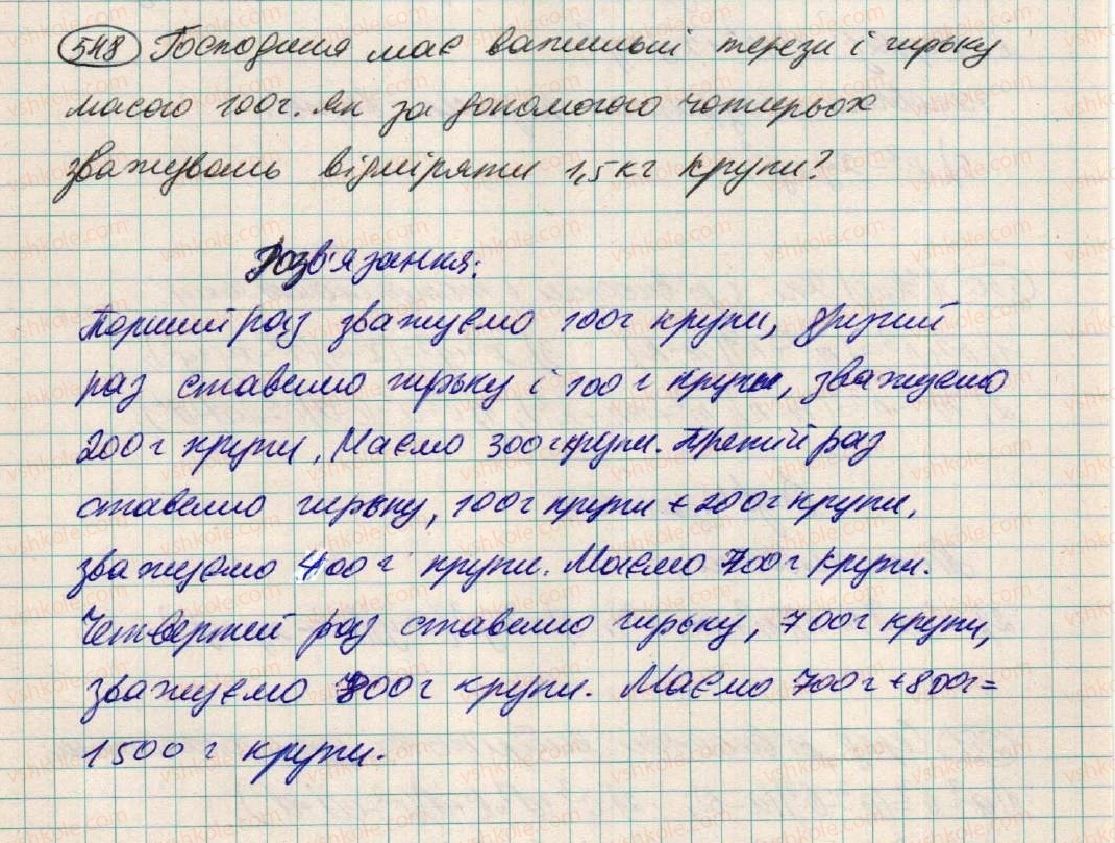 548 Господиня має важільні терези і гирьку
масою 100г. Як за допомогою чотирьох
зважувань відміряти 1,5кг крупи?
Розв'язання:
Перший раз зважуємо 100г крупи, другий
раз ставимо гирьку і 100г крупи, зважуємо
200г крупи, Маємо 300г крупи. Третій раз
ставимо гирьку, 100г крупи + 200г крупи,
зважуємо 400г крупи. Маємо 700г крупи.
Четвертий раз ставимо гирьку, 700г крупи,
зважуємо 800г крупи. Маємо 700г+800г=
1500г крупи.